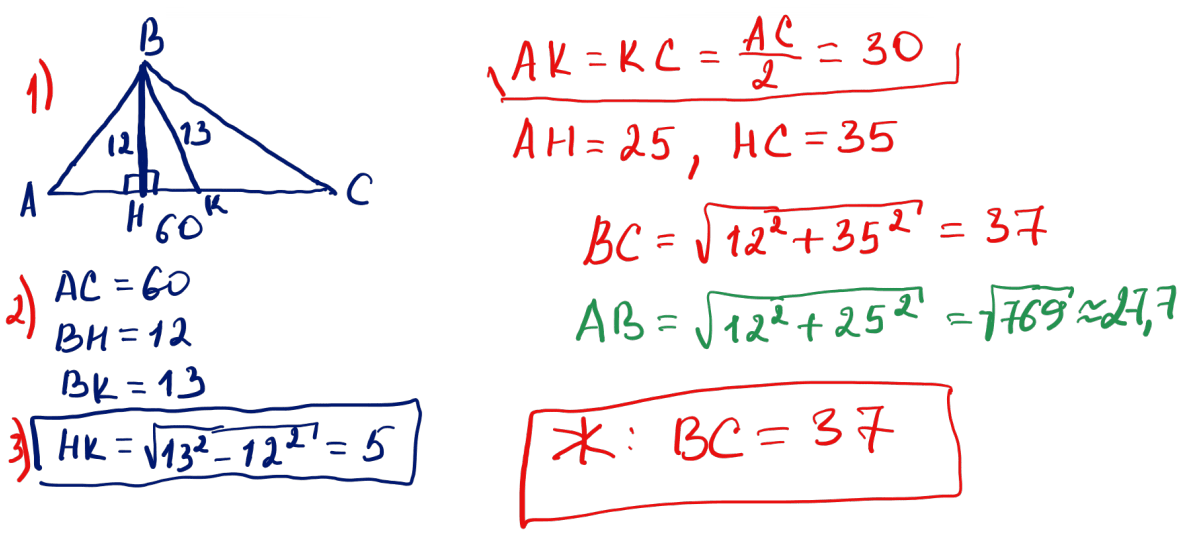 1)
B
12
13
A
H
K
C
60
2)
AC = 60
BH = 12
BK = 13
3) HK = √13² - 12² = 5
AK = KC = AC/2 = 30
AH = 25, HC = 35
BC = √12² + 35² = 37
AB = √12² + 25² = √769 ≈ 27,7
Ж: BC = 37